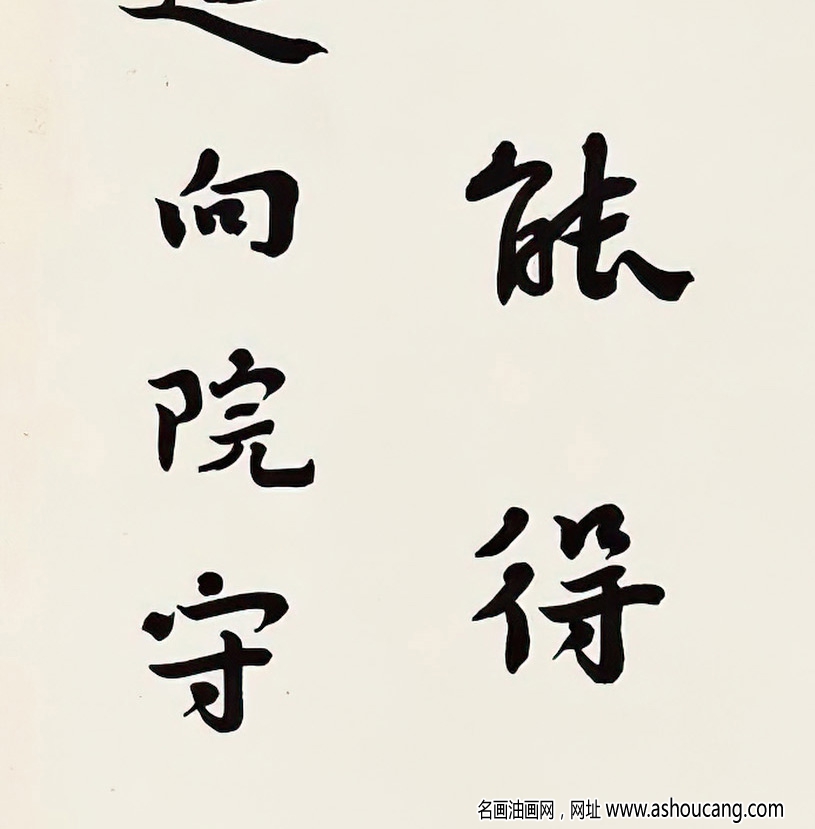 能得
向院守
名画油画网，网址 www.ashoucang.com